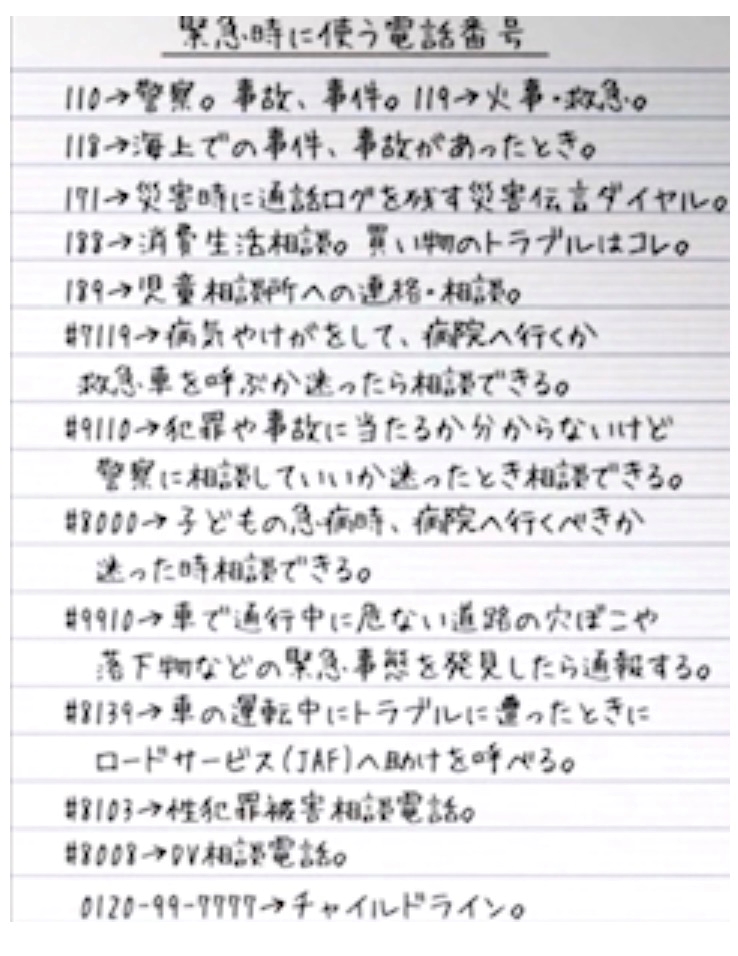 緊急時に使う電話番号
110→警察。事故、事件。119→火事・救急。
118→海上での事件、事故があったとき。
171→災害時に通話ログを残す災害伝言ダイヤル。
188→消費生活相談。買い物のトラブルはコレ。
189→児童相談所への連絡・相談。
#7119→病気やけがをして、病院へ行くか
救急車を呼ぶか迷ったら相談できる。
#9110→犯罪や事故に当たるか分からないけど
警察に相談していいか迷ったとき相談できる。
#8000→子どもの急病時、病院へ行くべきか
迷った時相談できる。
#9910→車で通行中に危ない道路の穴ぼこや
落下物などの緊急事態を発見したら通報する。
#8139→車の運転中にトラブルに遭ったときに
ロードサービス(JAF)へ助けを呼べる。
#8103→性犯罪被害相談電話。
#8008→DV相談電話。
0120-99-7777→チャイルドライン。